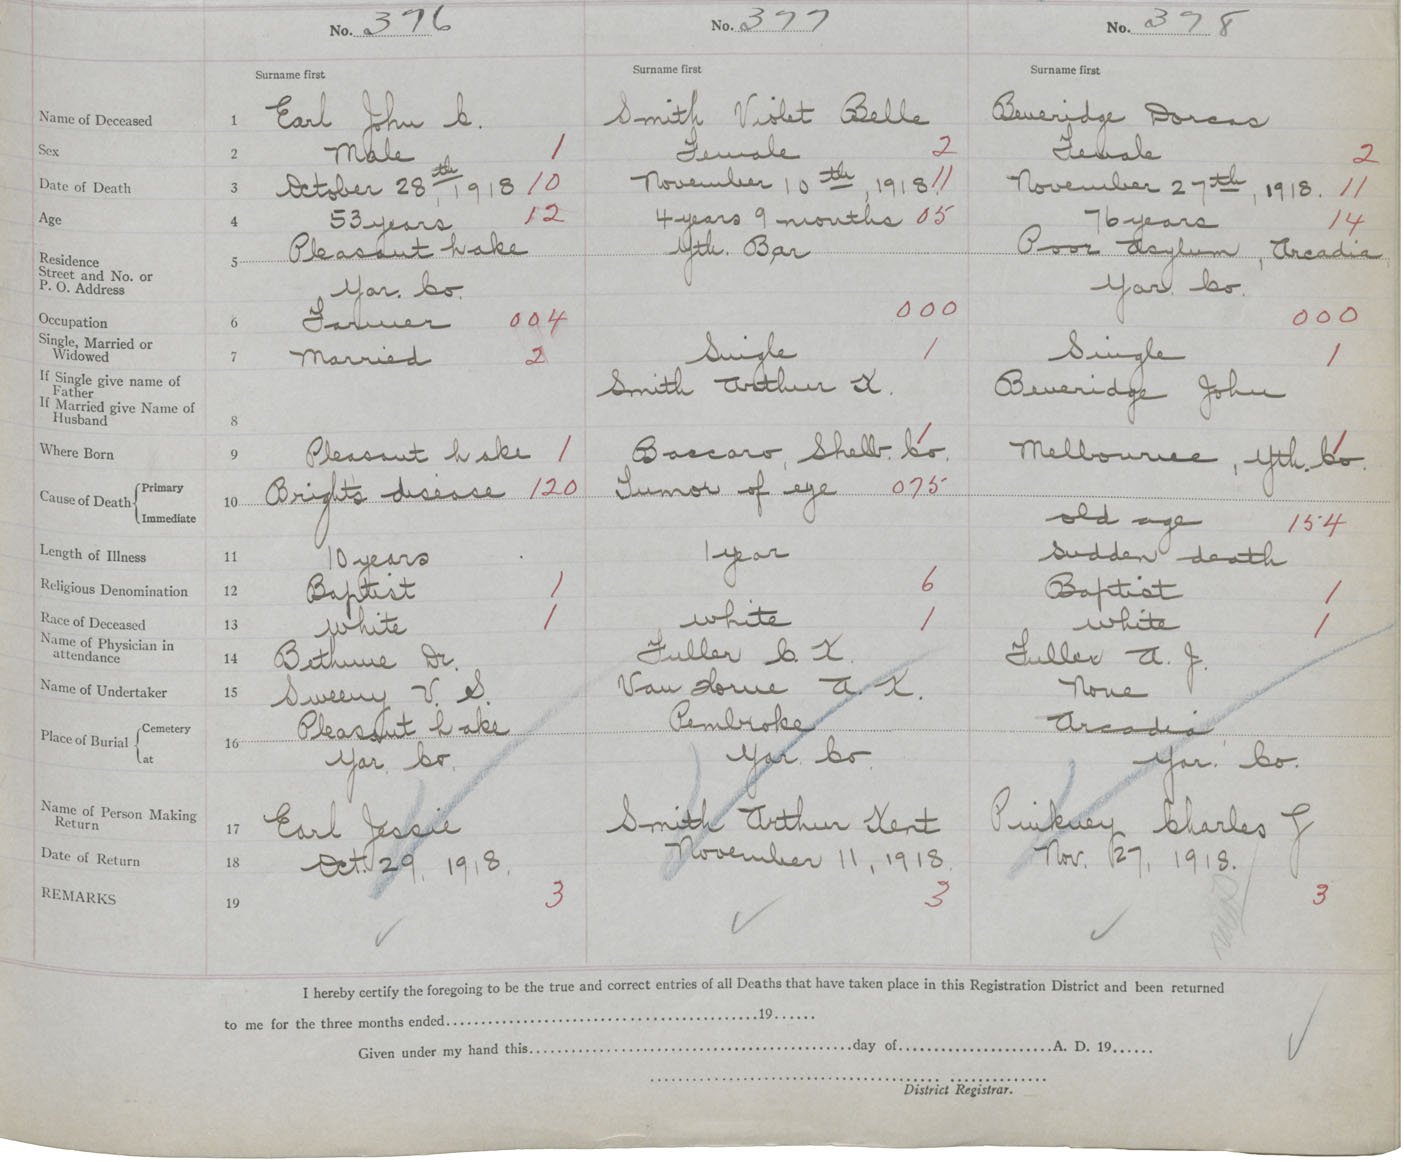 No. 376 No. 377 No. 378
Surname first Surname first Surname first
Name of Deceased 1 Earl John C. Smith Violet Belle Beveridge Dorcas
Sex 2 Male 1 Female 2 Female 2
Date of Death 3 October 28th, 1918 10 November 10th, 1918 11 November 27th, 1918. 11
Age 4 53 years 12 4 years 9 months 05 76 years 14
Residence 5 Pleasant Lake Yth. Bar Poor Asylum, Arcadia
Street and No. or
P. O. Address Yar. Co. Yar. Co.
Occupation 6 Farmer 004 000 000
Single, Married or
Widowed 7 Married 2 Single 1 Single 1
If Single give name of
Father Smith Arthur K. Beveridge John
If Married give Name of
Husband 8
Where Born 9 Pleasant Lake 1 Baccaro, Shelb. Co. 1 Melbourne, Yth. Co. 1
Cause of Death Primary 10 Brights disease 120 Tumor of eye 075
Immediate old age 154
Length of Illness 11 10 years 1 year Sudden death
Religious Denomination 12 Baptist 1 6 Baptist 1
Race of Deceased 13 White 1 White 1 White 1
Name of Physician in
attendance 14 Bethune Dr. Fuller C. K. Fuller A. J.
Name of Undertaker 15 Sweeny V. S. Van Horne A. K. None
Place of Burial Cemetery 16 Pleasant Lake Pembroke Arcadia
at Yar. Co. Yar. Co. Yar. Co.
Name of Person Making
Return 17 Earl Jessie Smith Arthur Kent Pinkney Charles G
Date of Return 18 Oct. 29, 1918. November 11, 1918. Nov. 27, 1918.
REMARKS 19 3 3 3
I hereby certify the foregoing to be the true and correct entries of all Deaths that have taken place in this Registration District and been returned
to me for the three months ended 19
Given under my hand this day of A. D. 19
District Registrar.